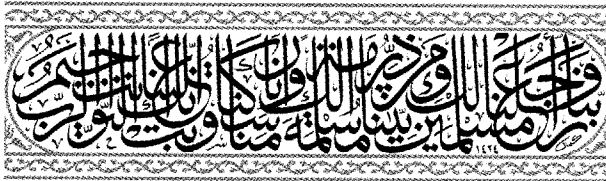 ربنا واجعلنا مسلمين لك ومن ذريتنا أمة مسلمة لك وأرنا مناسكنا وتب علينا إنك أنت التواب الرحيم
١٤٢٤